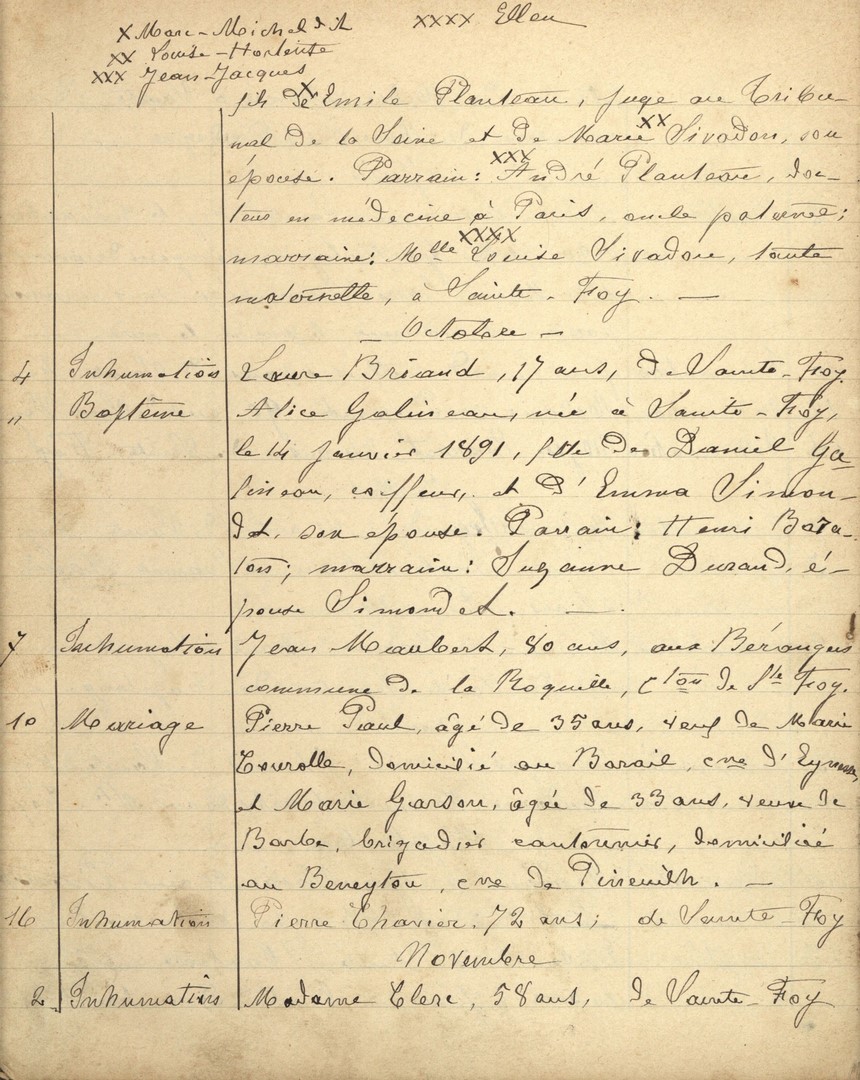 x Marc-Michel dit
xxxx Ellen
xx Louise-Hortense
xxx Jean-Jacques
x
fils de Emile Planteau, juge au Tribu-
xx
nal de la Seine et de Marie Sivadon, son
xxx
épouse. Parrain: André Planteau, doc-
teur en médecine à Paris, oncle paternel;
xxxx
marraine: Mlle Louise Sivadon, tante
maternelle, à Sainte-Foy. —
— Octobre —
4 Inhumation Laure Briand, 17 ans, de Sainte-Foy.
" Baptême Alice Galineau, née à Sainte-Foy,
le 14 janvier 1891, fille de Daniel Ga-
lineau, coiffeur, et d'Emma Simon-
det, son épouse. Parrain: Henri Bara-
ton; marraine: Suzanne Durand, é-
pouse Simondet. —
7 Inhumation Jean Maubert, 80 ans, aux Bérangers
commune de la Roquille, Cton de Ste Foy.
10 Mariage Pierre Paul, âgé de 35 ans, veuf de Marie
Tourolle, domicilié au Barail, cne d'Eynesse,
et Marie Garson, âgée de 33 ans, veuve de
Barbe, brigadier cantonnier, domiciliée
au Beneyton, cne de Pineuilh. —
16 Inhumation Pierre Chavier, 72 ans; de Sainte-Foy
Novembre
2 Inhumation Madame Clerc, 58 ans, de Sainte-Foy